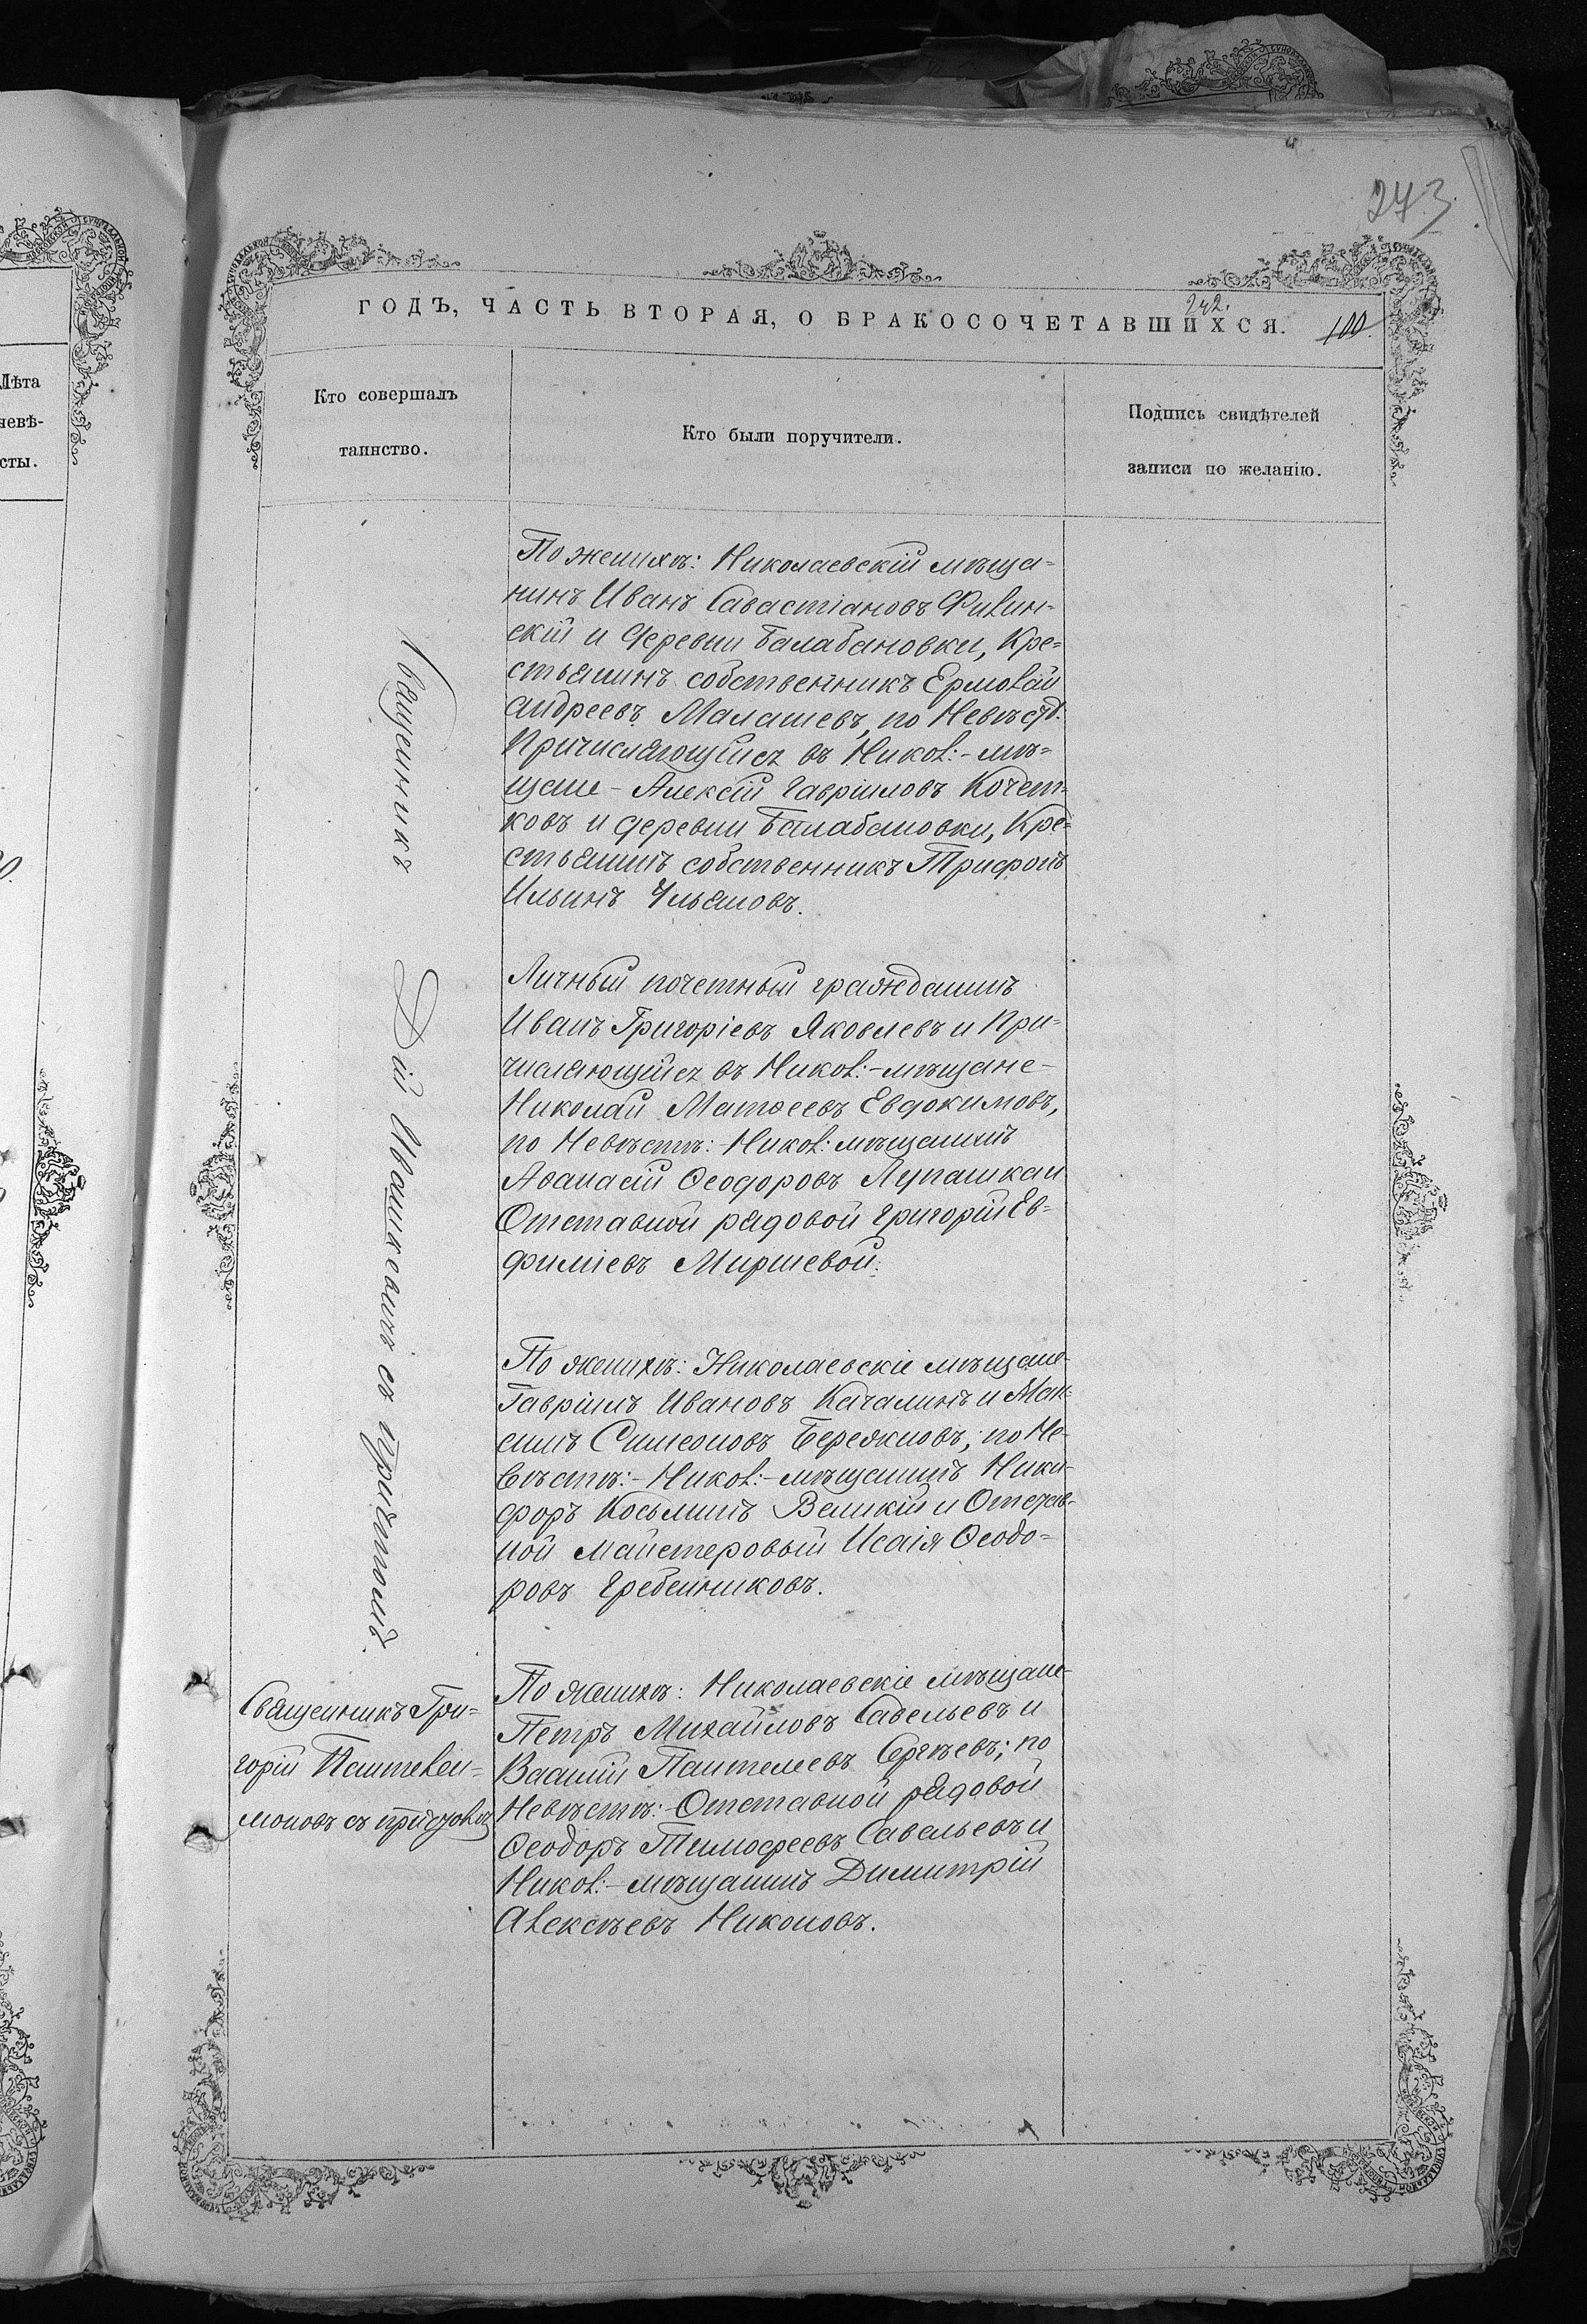 243
ГОДЪ, ЧАСТЬ ВТОРАЯ, О БРАКОСОЧЕТАВШИХСЯ.
242.
100.
Лѣта
невѣ-
сты.
Кто совершалъ
таинство.
Кто были поручители.
Подпись свидѣтелей
записи по желанію.
Священникъ Дій Ивашкевичъ съ причтомъ
По женихѣ: Николаевскій мѣща-
нинъ Иванъ Савастіановъ Филин-
скій и деревни Балабановки, Кре-
стьянинъ собственникъ Ермолай
Андреевъ Малашевъ, по Невѣстѣ:
Причисляющійся въ Никол:-мѣ-
щане - Алексій Гавріиловъ Кочет-
ковъ и деревни Балабановки, Кре-
стьянинъ собственникъ Трифонъ
Ильинъ Ульяновъ.
Личный почетный гражданинъ
Иванъ Григоріевъ Яковлевъ и При-
числяющійся въ Никол:-мѣщане-
Николай Матѳеевъ Евдокимовъ,
по Невѣстѣ: Никол: мѣщанинъ
Аѳанасій Ѳеодоровъ Лупашка и
Отставной рядовой Григорій Ев-
фиміевъ Миршевой.
По женихѣ: Николаевскіе мѣщане-
Гавріилъ Ивановъ Качалинъ и Мак-
симъ Симеоновъ Бережновъ; по Не-
вѣстѣ:- Никол:-мѣщанинъ Ники-
форъ Косьминъ Великій и Отстав-
ной Майстеровый Исаія Ѳеодо-
ровъ Гребенниковъ.
Священникъ Гри-
горій Пантелеи-
моновъ съ
По женихѣ: Николаевскіе мѣщане-
Петръ Михайловъ Савельевъ и
Василій Пантелеевъ Сергѣевъ; по
Невѣстѣ:- Отставной рядовой
Ѳеодоръ Тимофеевъ Савельевъ и
Никол:-мѣщанинъ Димитрій
Алексѣевъ Никоновъ.